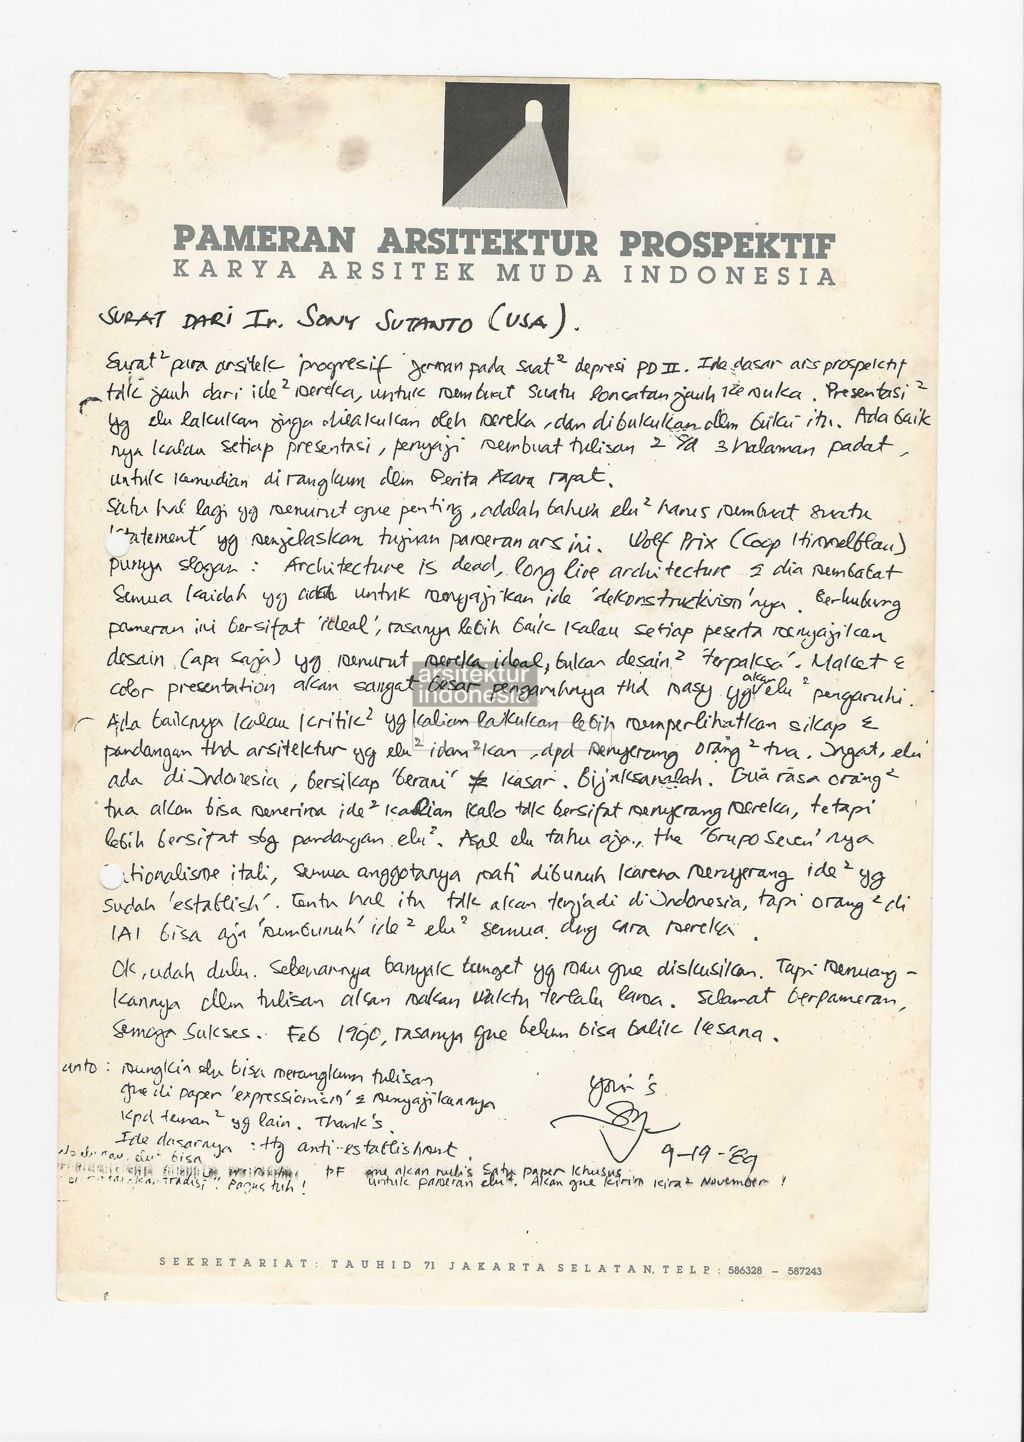 PAMERAN ARSITEKTUR PROSPEKTIF
KARYA ARSITEK MUDA INDONESIA
SURAT DARI Ir. SONY SUTANTO (USA).
Surat² para arsitek progresif Jerman pada saat² depresi PD II. Ide dasar ars prospektif
tdk jauh dari ide² mereka, untuk membuat suatu loncatan jauh ke muka. Presentasi²
yg elu lakukan juga dilakukan oleh mereka, dan dibukukan dlm buku itu. Ada baik
nya kalau setiap presentasi, penyaji membuat tulisan 2 s/d 3 halaman padat,
untuk kemudian dirangkum dlm Berita Acara rapat.
Satu hal lagi yg menurut gue penting, adalah bahwa elu² harus membuat suatu
'statement' yg menjelaskan tujuan pameran ars ini. Wolf Prix (Coop Himmelblau)
punya slogan : Architecture is dead, long live architecture & dia membabat
semua kaidah yg ada untuk menyajikan ide 'dekonstructivism'nya. Berhubung
pameran ini bersifat 'ideal', rasanya lebih baik kalau setiap peserta menyajikan
desain (apa saja) yg menurut mereka ideal, bukan desain² 'terpaksa'. Maket &
color presentation akan sangat besar pengaruhnya thd masy yg akan elu² pengaruhi.
arsitektur
indonesia
Ada baiknya kalau kritik² yg kalian lakukan lebih memperlihatkan sikap &
pandangan thd arsitektur yg elu² idam²kan, dpd menyerang orang² tua. Ingat, elu
ada di Indonesia, bersikap 'berani' ≠ kasar. Bijaksanalah. Gua rasa orang²
tua akan bisa menerima ide² kalian kalo tdk bersifat menyerang mereka, tetapi
lebih bersifat sbg pandangan elu². Asal elu tahu aja, the 'Grupo Seven'nya
rationalisme itali, semua anggotanya mati dibunuh karena menyerang ide² yg
sudah 'establish'. Tentu hal itu tdk akan terjadi di Indonesia, tapi orang² di
IAI bisa aja 'membunuh' ide² elu² semua dng cara mereka.
Ok, udah dulu. Sebenarnya banyak banget yg mau gue diskusikan. Tapi menuang-
kannya dlm tulisan akan makan waktu terlalu lama. Selamat berpameran,
semoga sukses. Feb 1990, rasanya gue belum bisa balik kesana.
anto : mungkin elu bisa merangkum tulisan
gue di paper 'expressionism' & menyajikannya
kpd teman² yg lain. Thank's.
Ide dasarnya : Hg anti-establishment.
your's
9-19-'89
elu bisa
tradisi". Bagus tuh!
gue akan nulis satu paper khusus
untuk pameran elu². Akan gue kirim kira² November!
SEKRETARIAT: TAUHID 71 JAKARTA SELATAN, TELP: 586328 - 587243